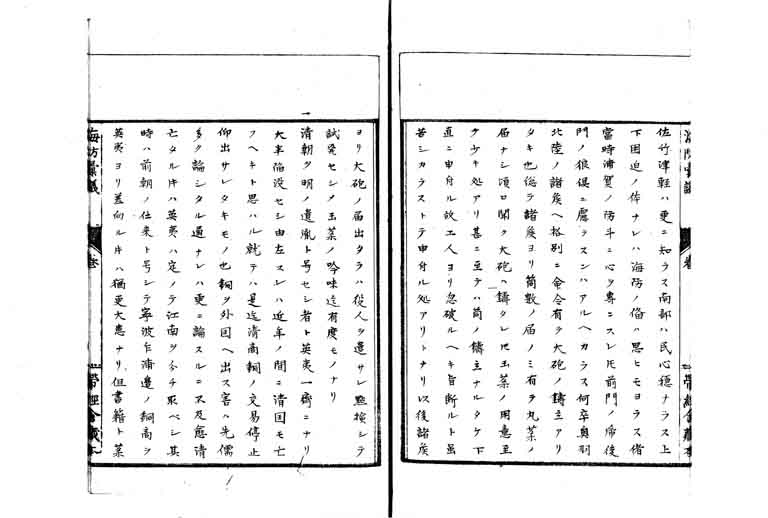 佐竹津軽ハ更ニ知ラス南部ハ民心穏ナラス上
下困迫ノ体ナレハ海防ノ備ハ思ヒモヨラス偖
當時浦賀ノ防斗ニ心ヲ専ニスレ𪜈前門ノ席後
門ノ狼倶ニ慮ラスンハアルヘカラス何卒奥羽
北陸ノ諸矦ヘ格別ニ命令有ク大砲ノ鋳立アリ
タキ也従テ諸矦ヨリ筒数ノ届ノミ有ヲ丸菜ノ
届ナシ頃ロ聞ク大砲ハ鋳タレ𪜈玉菜ノ用意至
テ少キ処アリ甚ニ至テハ筒ノ鋳立ナルタケ下
直ニ申付ル故工人ヨリ忽破ルヘキ旨断ルト虽
苦シカラストテ申付ル処アリトナリ以後諸矦
ヨリ大砲ノ届出タラハ役人ヲ遣サレ點検シテ
試発セシメ玉菜ノ吟味迄有度モノナリ
一
清朝ヲ明ノ遺胤ト号セシ者ト英夷一齊ニナリ
大半陥没セシ由左スレハ近年ノ間ニ清国モ亡
フヘキト思ハル就テハ是迄清商銅ノ交易停止
仰出サレタキモノ也銅ヲ外国ヘ出ス害ハ先儒
多ク論シタル通ナレハ更ニ論スルニ不及愈清
亡タル片ハ英夷ハ定メテ江南ヲ分チ取ベシ其
時ハ前朝ノ仕来ト号シテ寧波乍浦邊ノ銅商ヲ
英夷ヨリ差向ル片ハ猶更大患ナリ但書籍ト菜
海防彙議
巻
帶經舎藏本